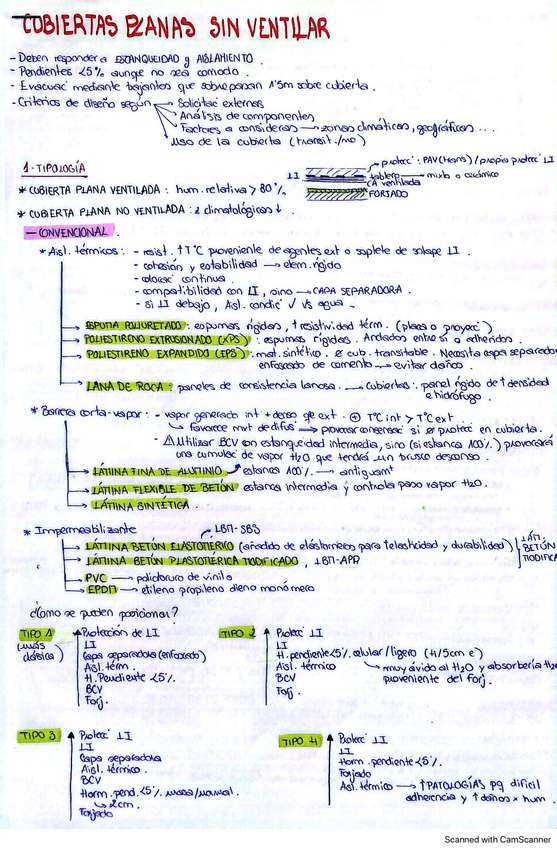 CUBIERTAS PLANAS SIN VENTILAR
- Deben responder a ESTANQUEIDAD y AISLAMIENTO.
- Pendientes <5% aunque no sea comodo.
- Evacuac mediante bajantes que sobrepasan 1'5m sobre cubierta.
- Criterios de diseño según → Solicitac externas
→ Análisis de componentes
→ Factores a considerar → zonas climáticas, geográficas ...
→ Uso de la cubierta (transit./no)
1. TIPOLOGÍA
* CUBIERTA PLANA VENTILADA: hum. relativa > 80%
LI
→ protecc: PAV (trans) / propia protecc LI
tablero → mixto o cerámico
CA ventilada
FORJADO
* CUBIERTA PLANA NO VENTILADA: z climatológicas ↓.
- CONVENCIONAL.
* Aisl. térmicos: - resist. ↑T°C proveniente de agentes ext o soplete de solape LI.
- cohesión y estabilidad → elem. rígido
- colocac continua
- compatibilidad con LI, sino → CAPA SEPARADORA.
- si LI debajo, Aisl. condic ✓ vs agua.
→ ESPUMA POLIURETANO: espumas rígidas, ↑ resistividad térm. (placa o proyecc)
→ POLIESTIRENO EXTRUSIONADO (XPS): espumas rígidas. Ancladas entre si o adheridas.
→ POLIESTIRENO EXPANDIDO (EPS): mat. sintético. Ø cub. transitable. Necesita capa separadora
enfoscado de cemento → evitar daños.
→ LANA DE ROCA: paneles de consistencia lanosa. → Cubiertas: panel rígido de ↑ densidad
e hidrófugo.
* Barrera corta-vapor: - vapor generado int + denso qe ext. ⊕ T°C int > T°C ext.
↳ Favorece mvt de difus → provocar condensac si Ø protecc en cubierta.
- ⚠ Utilizar BCV con estanqueidad intermedia, sino (si estanca 100%) provocará
una cumulac de vapor H2O que tendrá un brusco descenso.
→ LÁMINA FINA DE ALUMINIO → estanca 100% → antiguamt
→ LÁMINA FLEXIBLE DE BETÚN estanca intermedia y controla paso vapor H2O.
→ LÁMINA SINTÉTICA.
* Impermeabilizante
→ LBM-SBS
→ LÁMINA BETÚN ELASTOMÉRICO (añadido de elástomeros para +elasticidad y durabilidad)
→ LÁMINA BETÚN PLASTOMÉRICA MODIFICADO, LBM-APP
LÁM.
BETÚN
MODIFICA
→ PVC → policloruro de vinilo
→ EPDM → etileno propileno dieno monómero
¿Como se pueden posicionar?
TIPO 1
(más clásica)
Protección de LI
LI
Capa separadora (enfoscado)
Aisl. térm.
H. Pendiente <5%.
BCV
Forj.
TIPO 2
Protecc LI
LI
H. pendiente <5% celular/ligero (H/5cm e)
Aisl. térmico → muy ávido al H2O y absorbería H2O
BCV proveniente del forj.
Forj
TIPO 3
Protecc LI
LI
Capa separadora
Aisl. térmico
BCV
Horm. pend. <5% masa/normal.
↳ 2cm.
Forjado
TIPO 4
Protecc LI
LI
Horm. pendiente <5%.
Forjado
Aisl. térmico → ↑PATOLOGÍAS pq dificil
adherencia y ↑ daños x hum.
Scanned with CamScanner